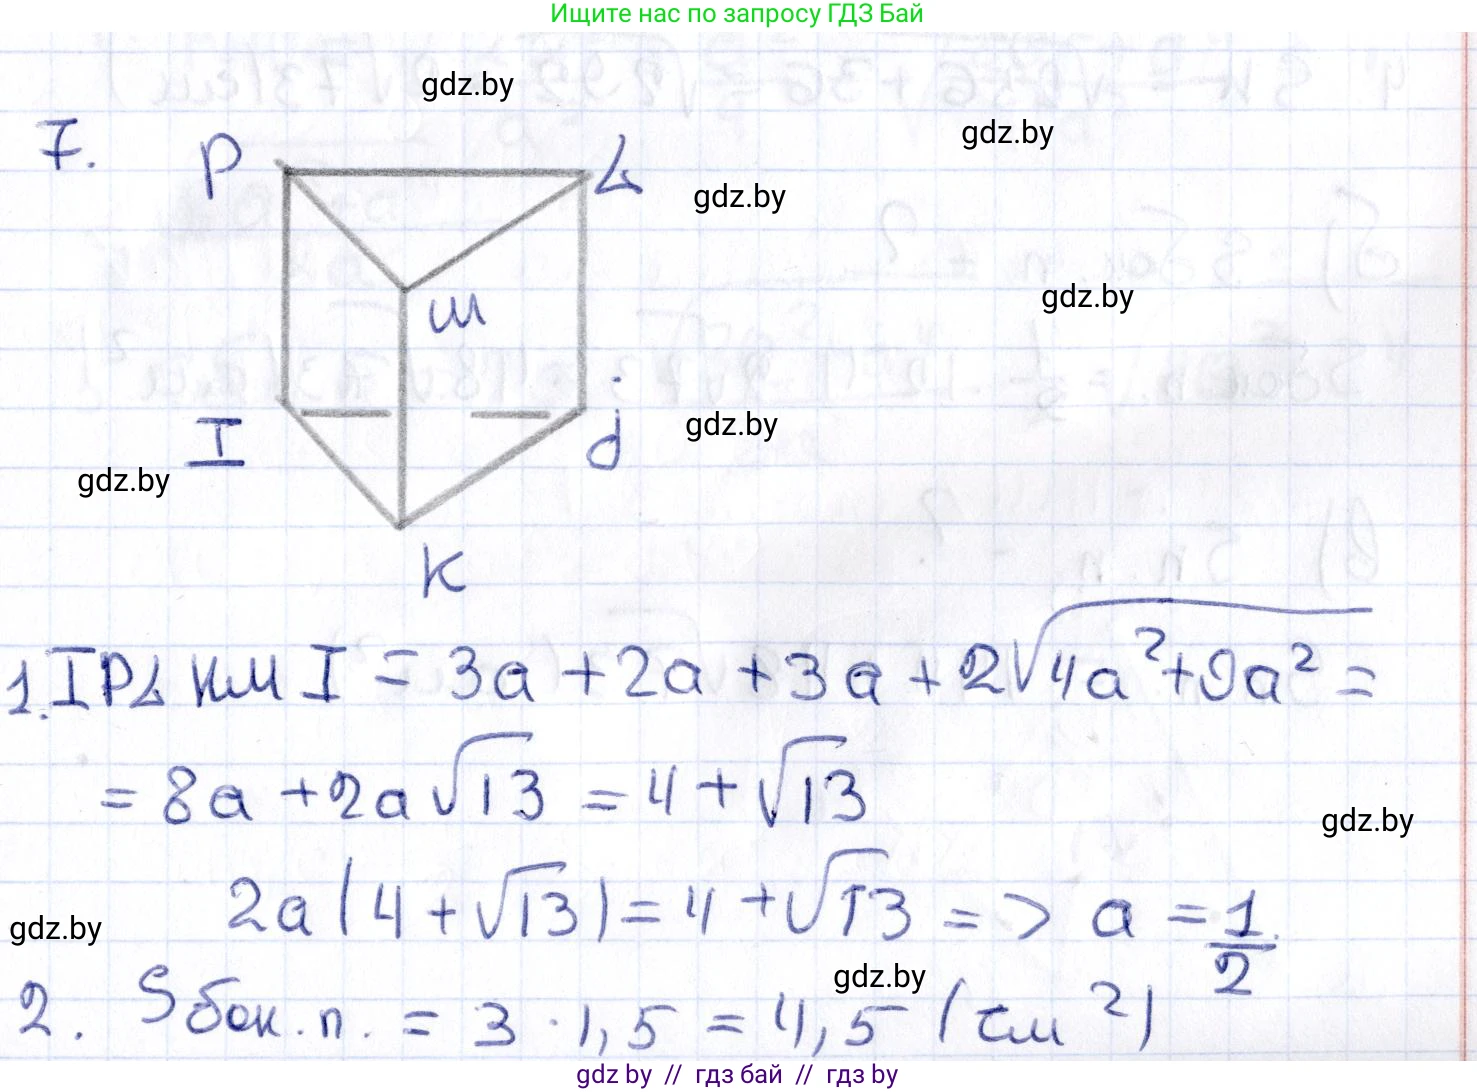 Ищите нас по запросу ГДЗ Бай
gdz.by
gdz.by
7.
P
L
gdz.by
gdz.by
M
I
J
gdz.by
gdz.by
K
1. IPLKMI = 3a + 2a + 3a + 2√(4a² + 9a²) =
= 8a + 2a√13 = 4 + √13
gdz.by
2a(4 + √13) = 4 + √13 => a = 1/2.
gdz.by
gdz.by
2. Sбок.п. = 3 · 1,5 = 4,5 (см²)
gdz by // гдз бай // гдз by